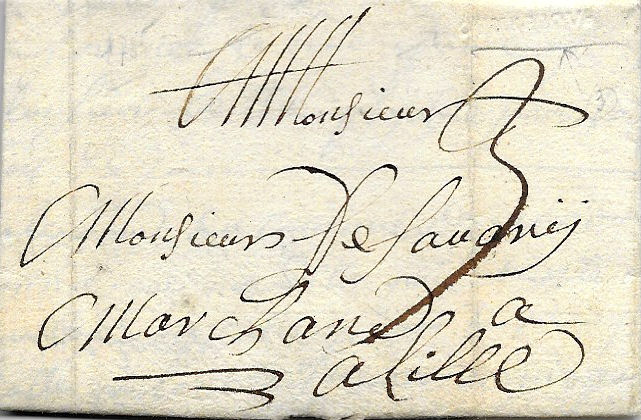 Monsieur
Monsieur De Sauvnij
Marchand a
a Lille